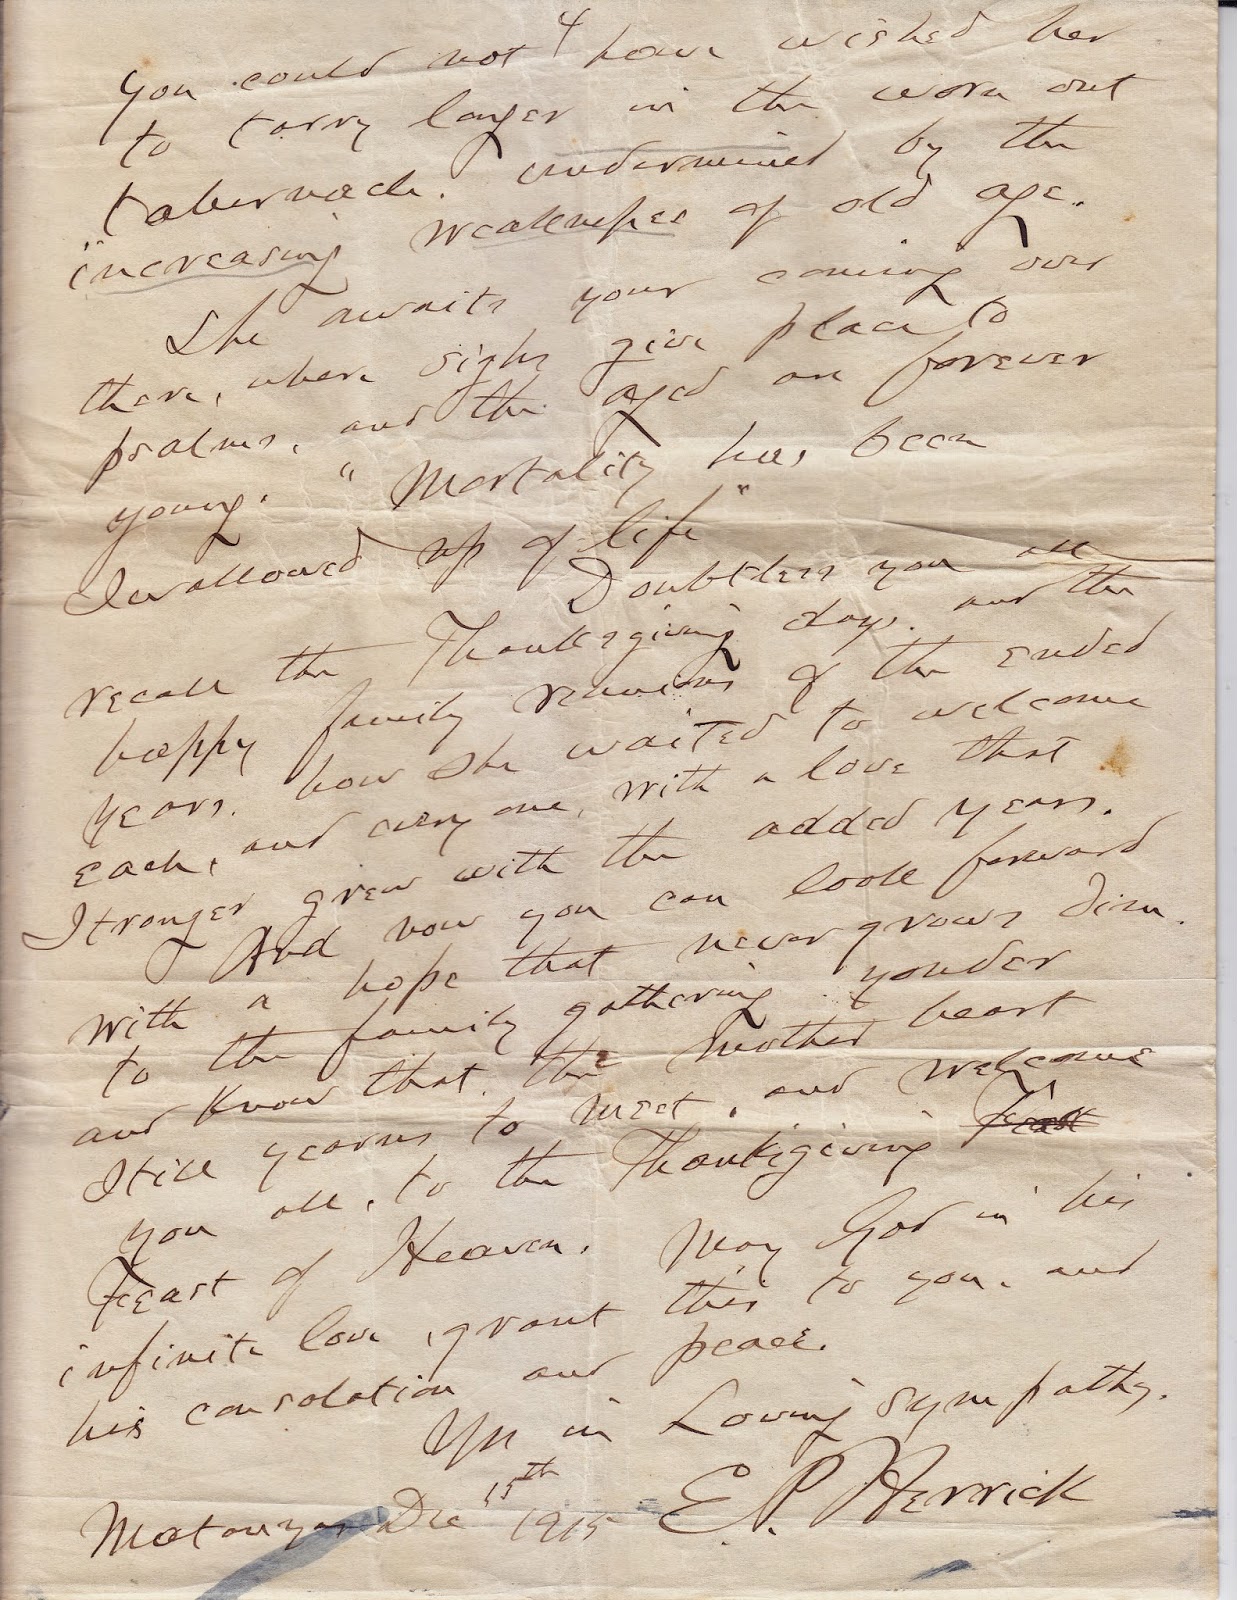 4
You could not have wished her
to tarry longer in the worn out
tabernacle. undermined by the
"increasing weaknesses of old age.
She awaits your coming over
there, where sighs give place to
psalms, and the aged are forever
young. "Mortality has been
Swallowed up of life"
Doubtless you all
recall the Thanksgiving days. and the
happy family reunions of the ended
years. how she waited to welcome
each, and every one, with a love that
Stronger grew with the added years.
And now you can look forward
with a hope that never grows dim.
to the family gathering yonder
and know that the mother heart
Still yearns to meet, and welcome
you all, to the Thanksgiving Feast
Feast of Heaven. May God in his
infinite love, grant this to you. and
his consolation and peace.
Yrs in Loving sympathy.
E. P. Herrick
Matanzas Dec 15th 1915